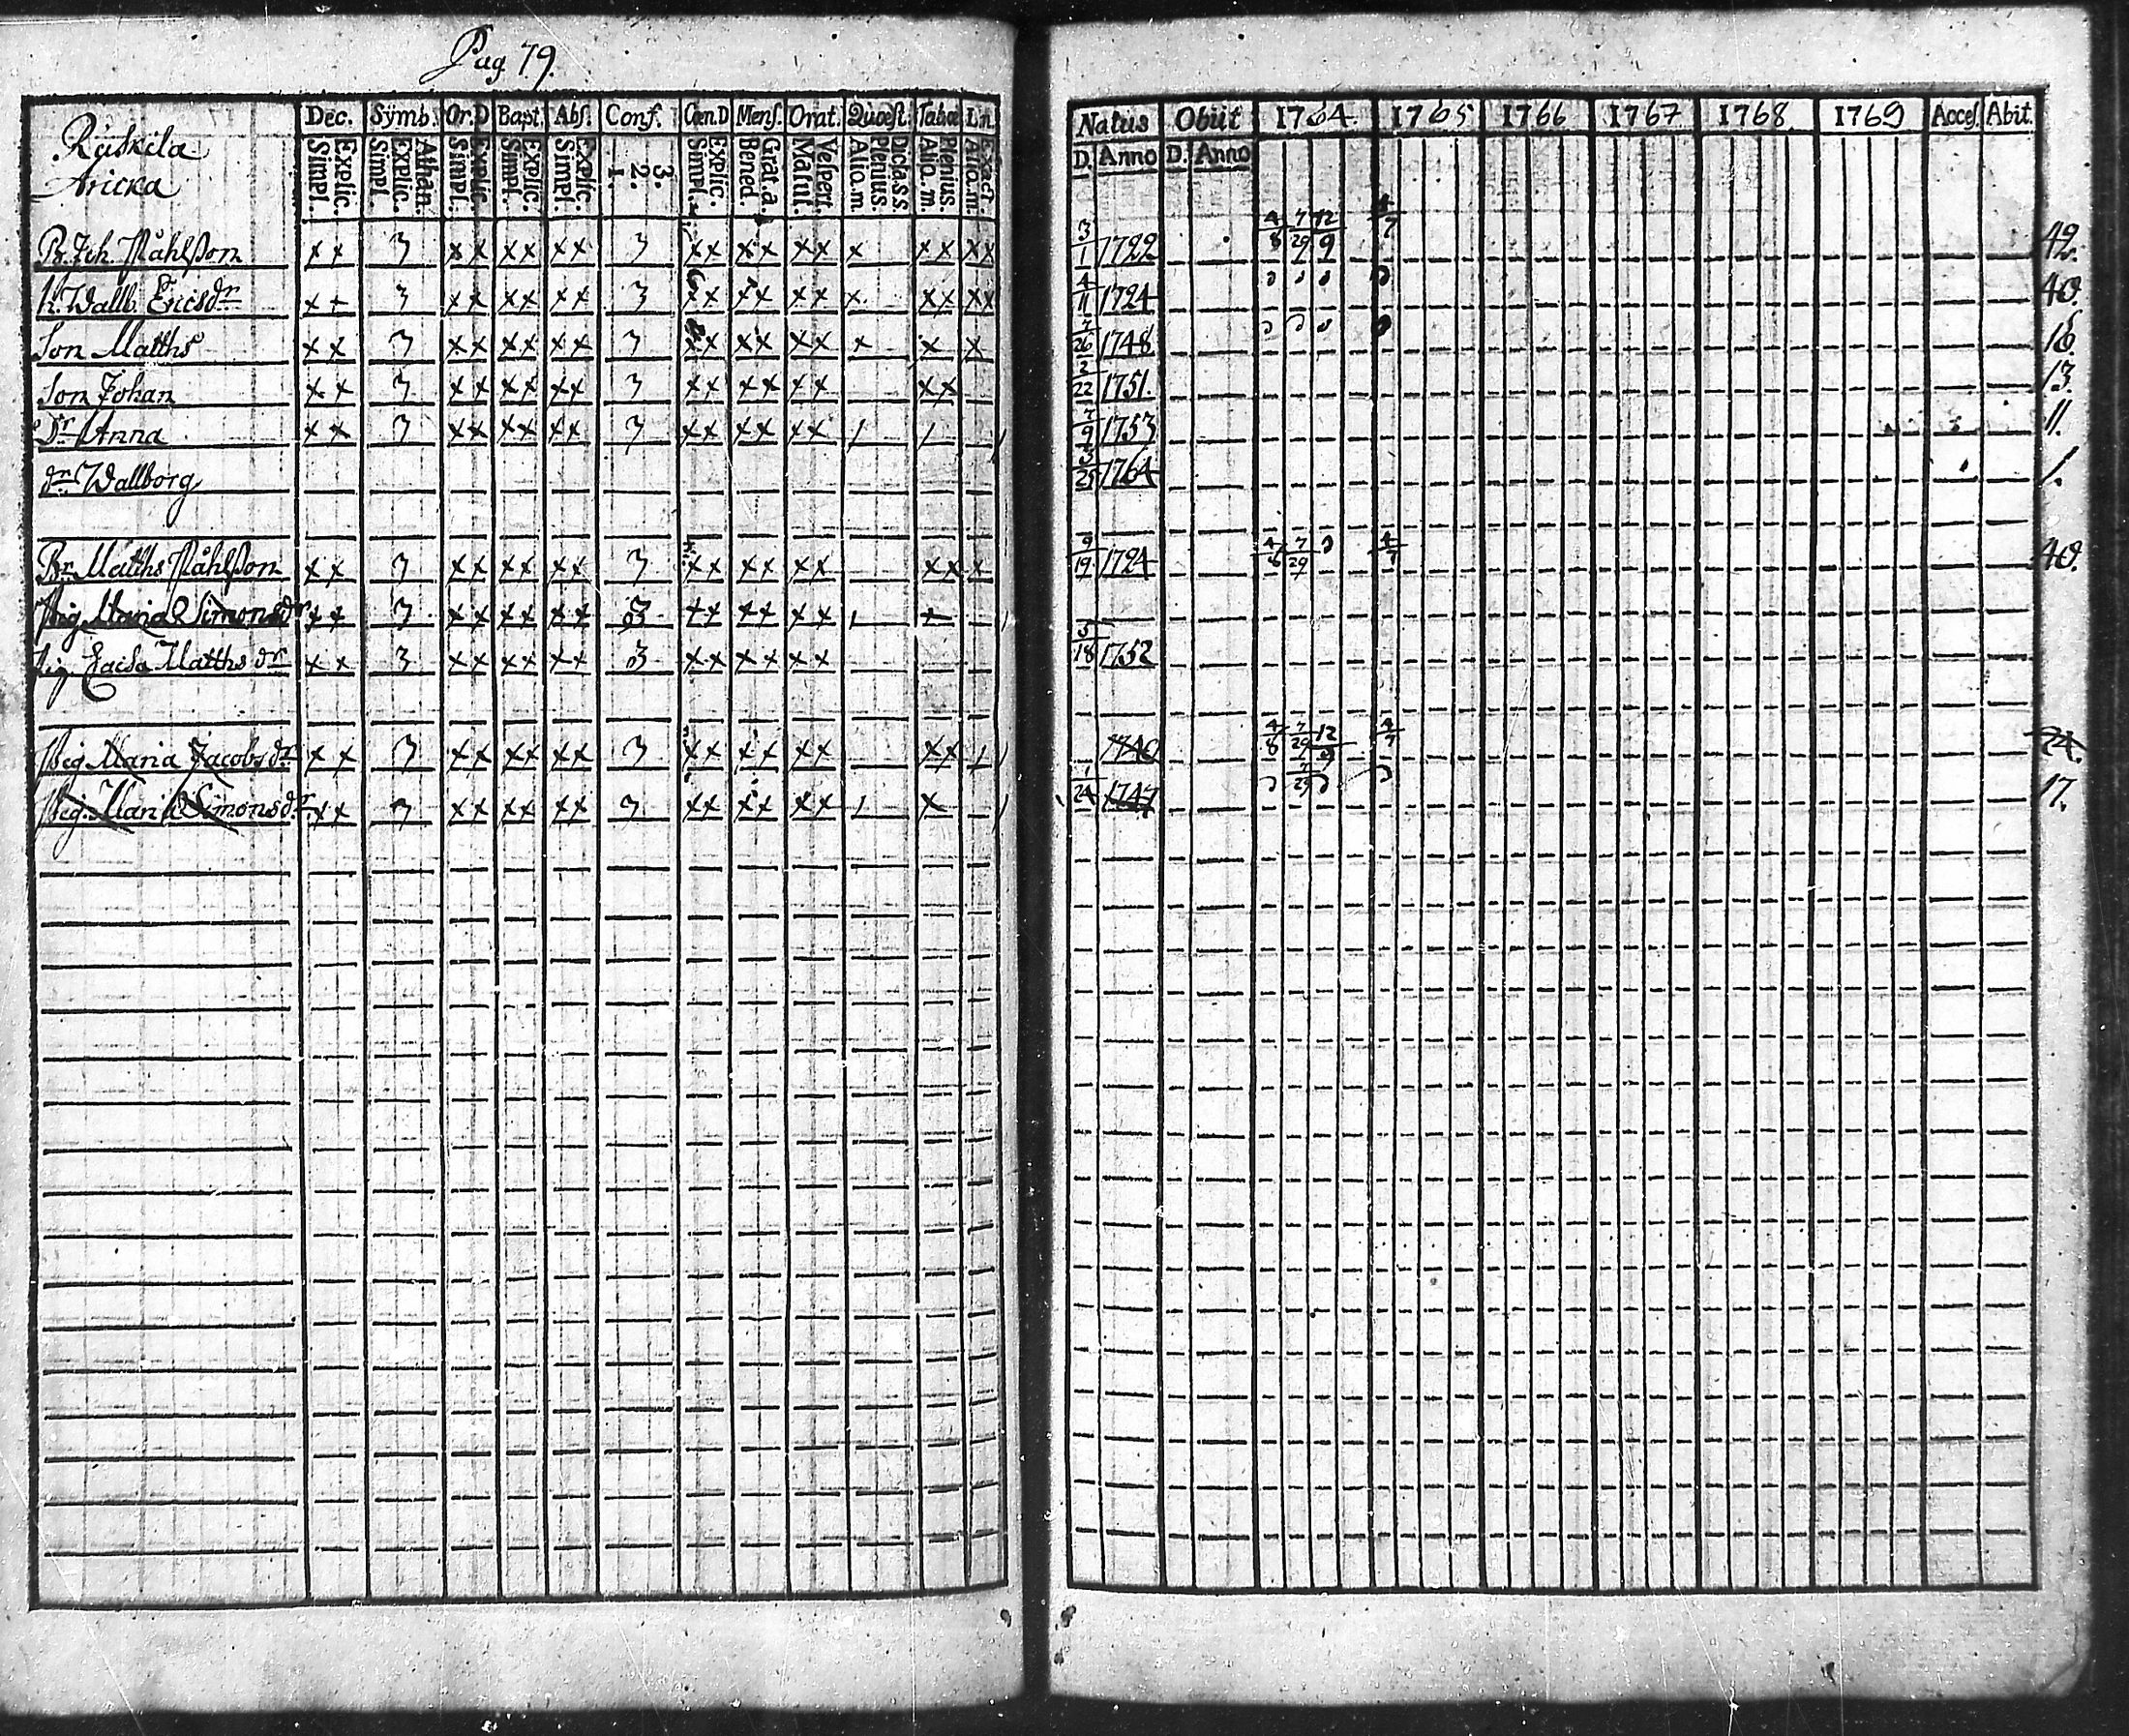 Pag. 79.
Dec. Symb. Or.D Bapt. Abs. Conf. Cœn.D Mens. Orat. Quæst. Taba Lin.
Natus Obiit 1764. 1765 1766 1767 1768 1769 Acces. Abit.
Simpl. Explic. Simpl. Explic. Athan. Simpl. Explic. Simpl. Explic. Simpl. Explic. 1. 2. 3. Simpl. Explic. Bened. Grat. a. Matut. Vespert. Alio. m Plenius. Dicta. s.s. Alio. m. Plenius. Alio. m. Exact.
D. Anno D. Anno
Ruskila
Aricka
B. Joh. Påhlsson x x 3 x x x x x x 3 x x x x x x x x x x x 3/1 1722 4/8 7/29 12/9 4/7 42.
h. Wallb. Ericsdr x x 3 x x x x x x 3 x x x x x x x x x x x 4/11 1724 40.
Son Matths x x 3 x x x x x x 3 x x x x x x x x x 7/26 1748 16.
Son Johan x x 3 x x x x x x 3 x x x x x x x x 2/22 1751. 13.
Dr Anna x x 3 x x x x x x 3 x x x x x x 7/9 1753 11.
dr Wallborg 3/25 1764 1.
Br Matths Påhlsson x x 3 x x x x x x 3 x x x x x x x x x 9/19 1724 4/8 7/29 4/7 40.
Pig Maria Simonsdr x x 3 x x x x x x 3 x x x x x x
Pig. Caisa Matthsdr x x 3 x x x x x x 3 x x x x x x 3/18 1752
Pig Maria Jacobsdr x x 3 x x x x x x 3 x x x x x x x x 1740 4/8 7/29 12/9 4/7 24.
Pig. Maria Simonsdr. x x 3 x x x x x x 3 x x x x x x x 1/24 1747 7/29 17.